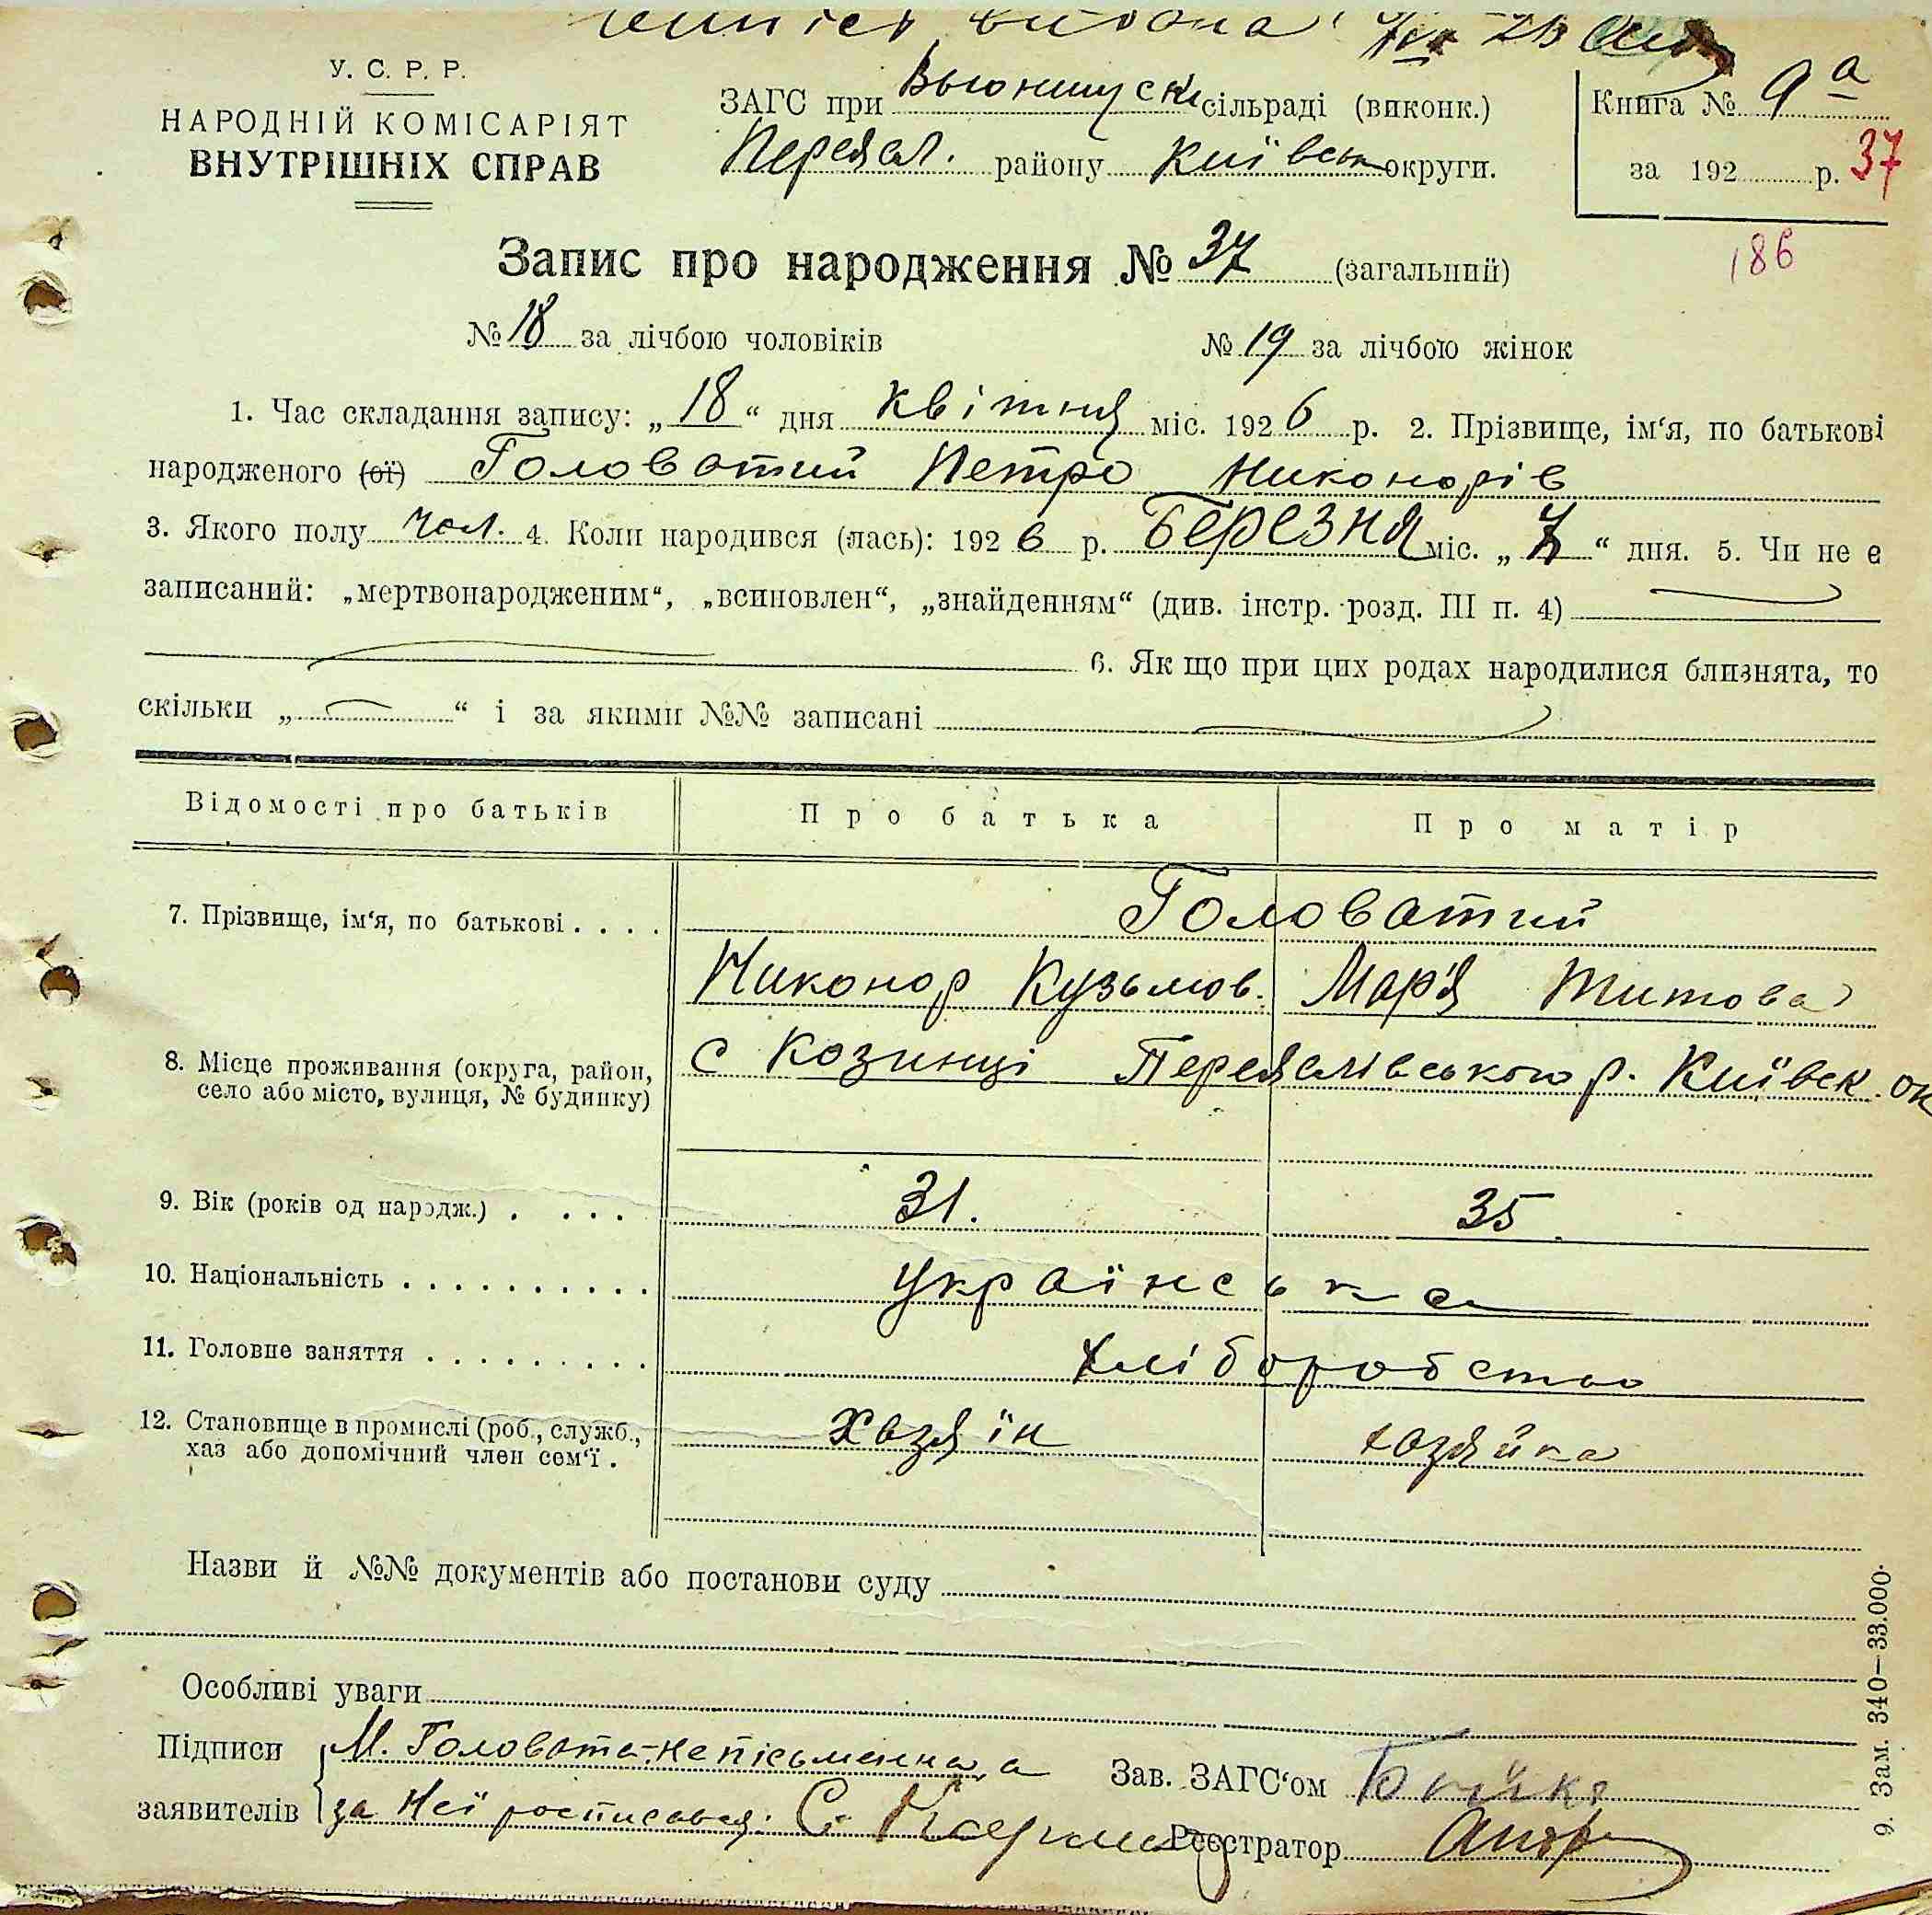 видона
У. С. Р. Р.
НАРОДНІЙ КОМІСАРІЯТ
ВНУТРІШНІХ СПРАВ
ЗАГС при Вьюнищуськ сільраді (виконк.)
Переясл. району Київськ округи.
Книга № 9а
за 192 р. 37
186
Запис про народження № 37 (загальний)
№ 18 за лічбою чоловіків № 19 за лічбою жінок
1. Час складання запису: „ 18 “ дня квітня міс. 1926 р. 2. Прізвище, ім‘я, по батькові
народженого (ої) Головатий Петро Никонорів
3. Якого полу чол. 4. Коли народився (лась): 1926 р. Березня міс. „ 7 “ дня. 5. Чи не є
записаний: „мертвонародженим“, „всиновлен“, „знайденням“ (див. інстр. розд. III п. 4)
6. Як що при цих родах народилися близнята, то
скільки „ “ і за якими №№ записані
Відомості про батьків Про батька Про матір
7. Прізвище, ім‘я, по батькові . . . . Головатий
Никонор Кузьмов. Мар'я Титова
8. Місце проживання (округа, район, с Козинці Переяслівського р. Київськ. ок
село або місто, вулиця, № будинку)
9. Вік (років од народж.) . . . . 31. 35.
10. Національність . . . . . . . . . . українська
11. Головне заняття . . . . . . . . . хліборобство
12. Становище в промислі (роб., служб., хазяїн хозяйка
хаз або допомічний член сем‘ї .
Назви й №№ документів або постанови суду
Особливі уваги
Підписи М. Головата-неписьменна, а Зав. ЗАГС‘ом Бойко
заявителів за неї росписався: С. Реєстратор
9. Зам. 340—33.000.